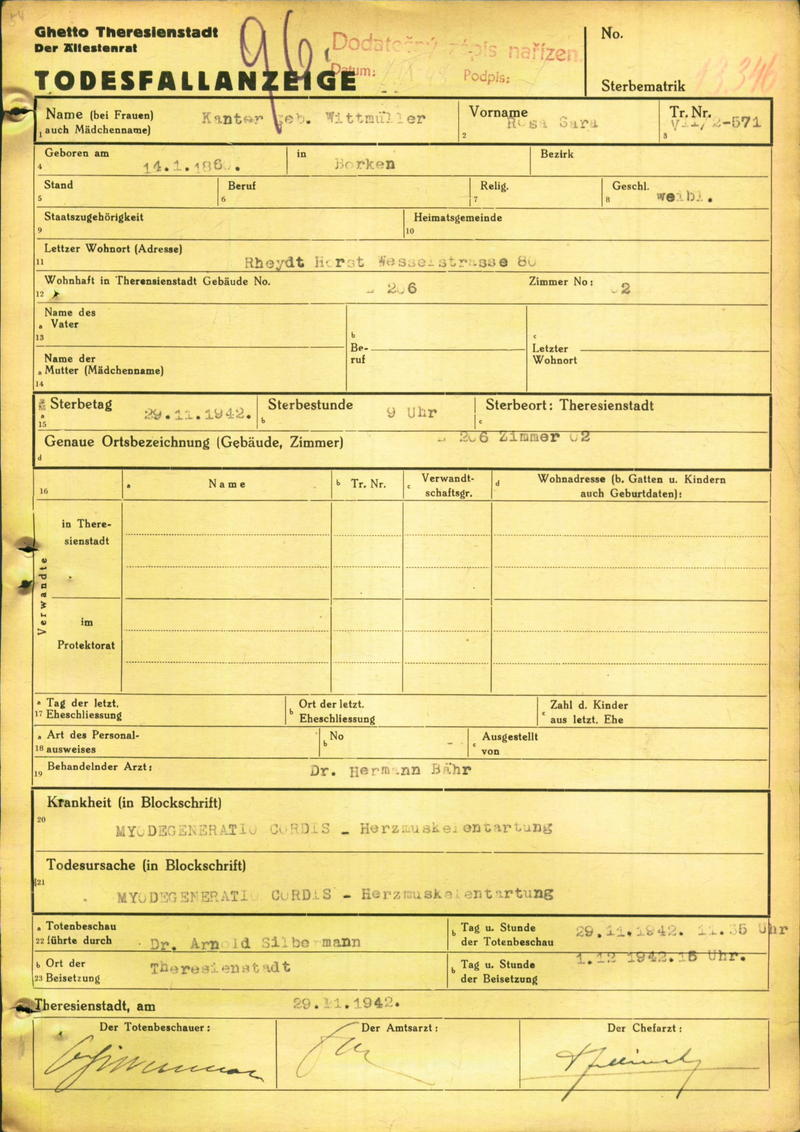 Ghetto Theresienstadt
Der Ältestenrat
TODESFALLANZEIGE
Dodatečný zápis nařízen
Datum:
Podpis:
No.
Sterbematrik 13.346
Name (bei Frauen) auch Mädchenname) Kanter geb. Wittmüller
1
Vorname Rosa Sara
2
Tr. Nr. VII/2-571
3
Geboren am 14.1.186
4
in Borken
Bezirk
Stand
5
Beruf
6
Relig.
7
Geschl. weibl.
8
Staatszugehörigkeit
9
Heimatsgemeinde
10
Lettzer Wohnort (Adresse)
11
Rheydt Horst Wesselstrasse 80
Wohnhaft in Theresienstadt Gebäude No.
12
206
Zimmer No: 02
Name des
a Vater
13
Name der
a Mutter (Mädchenname)
14
b
Be-
ruf
c
Letzter
Wohnort
Sterbetag 29.11.1942.
a
15
Sterbestunde 9 Uhr
b
Sterbeort: Theresienstadt
c
Genaue Ortsbezeichnung (Gebäude, Zimmer) 206 Zimmer 02
d
16
a Name
b Tr. Nr.
c Verwandt-
schaftsgr.
d Wohnadresse (b. Gatten u. Kindern
auch Geburtdaten):
Verwandte
in There-
sienstadt
im
Protektorat
a Tag der letzt.
17 Eheschliessung
b Ort der letzt.
Eheschliessung
c Zahl d. Kinder
aus letzt. Ehe
a Art des Personal-
18 ausweises
b No
-
c Ausgestellt
von
19 Behandelnder Arzt: Dr. Hermann Bähr
Krankheit (in Blockschrift)
20
MYODEGENERATIO CORDIS - Herzmuskelentartung
Todesursache (in Blockschrift)
21
MYODEGENERATIO CORDIS - Herzmuskelentartung
a Totenbeschau
22 führte durch Dr. Arnold Silbermann
b Tag u. Stunde
der Totenbeschau
29.11.1942. 11.35 Uhr
b Ort der
23 Beisetzung Theresienstadt
b Tag u. Stunde
der Beisetzung
1.12 1942.15 Uhr.
Theresienstadt, am 29.11.1942.
Der Totenbeschauer:
Der Amtsarzt:
Der Chefarzt: